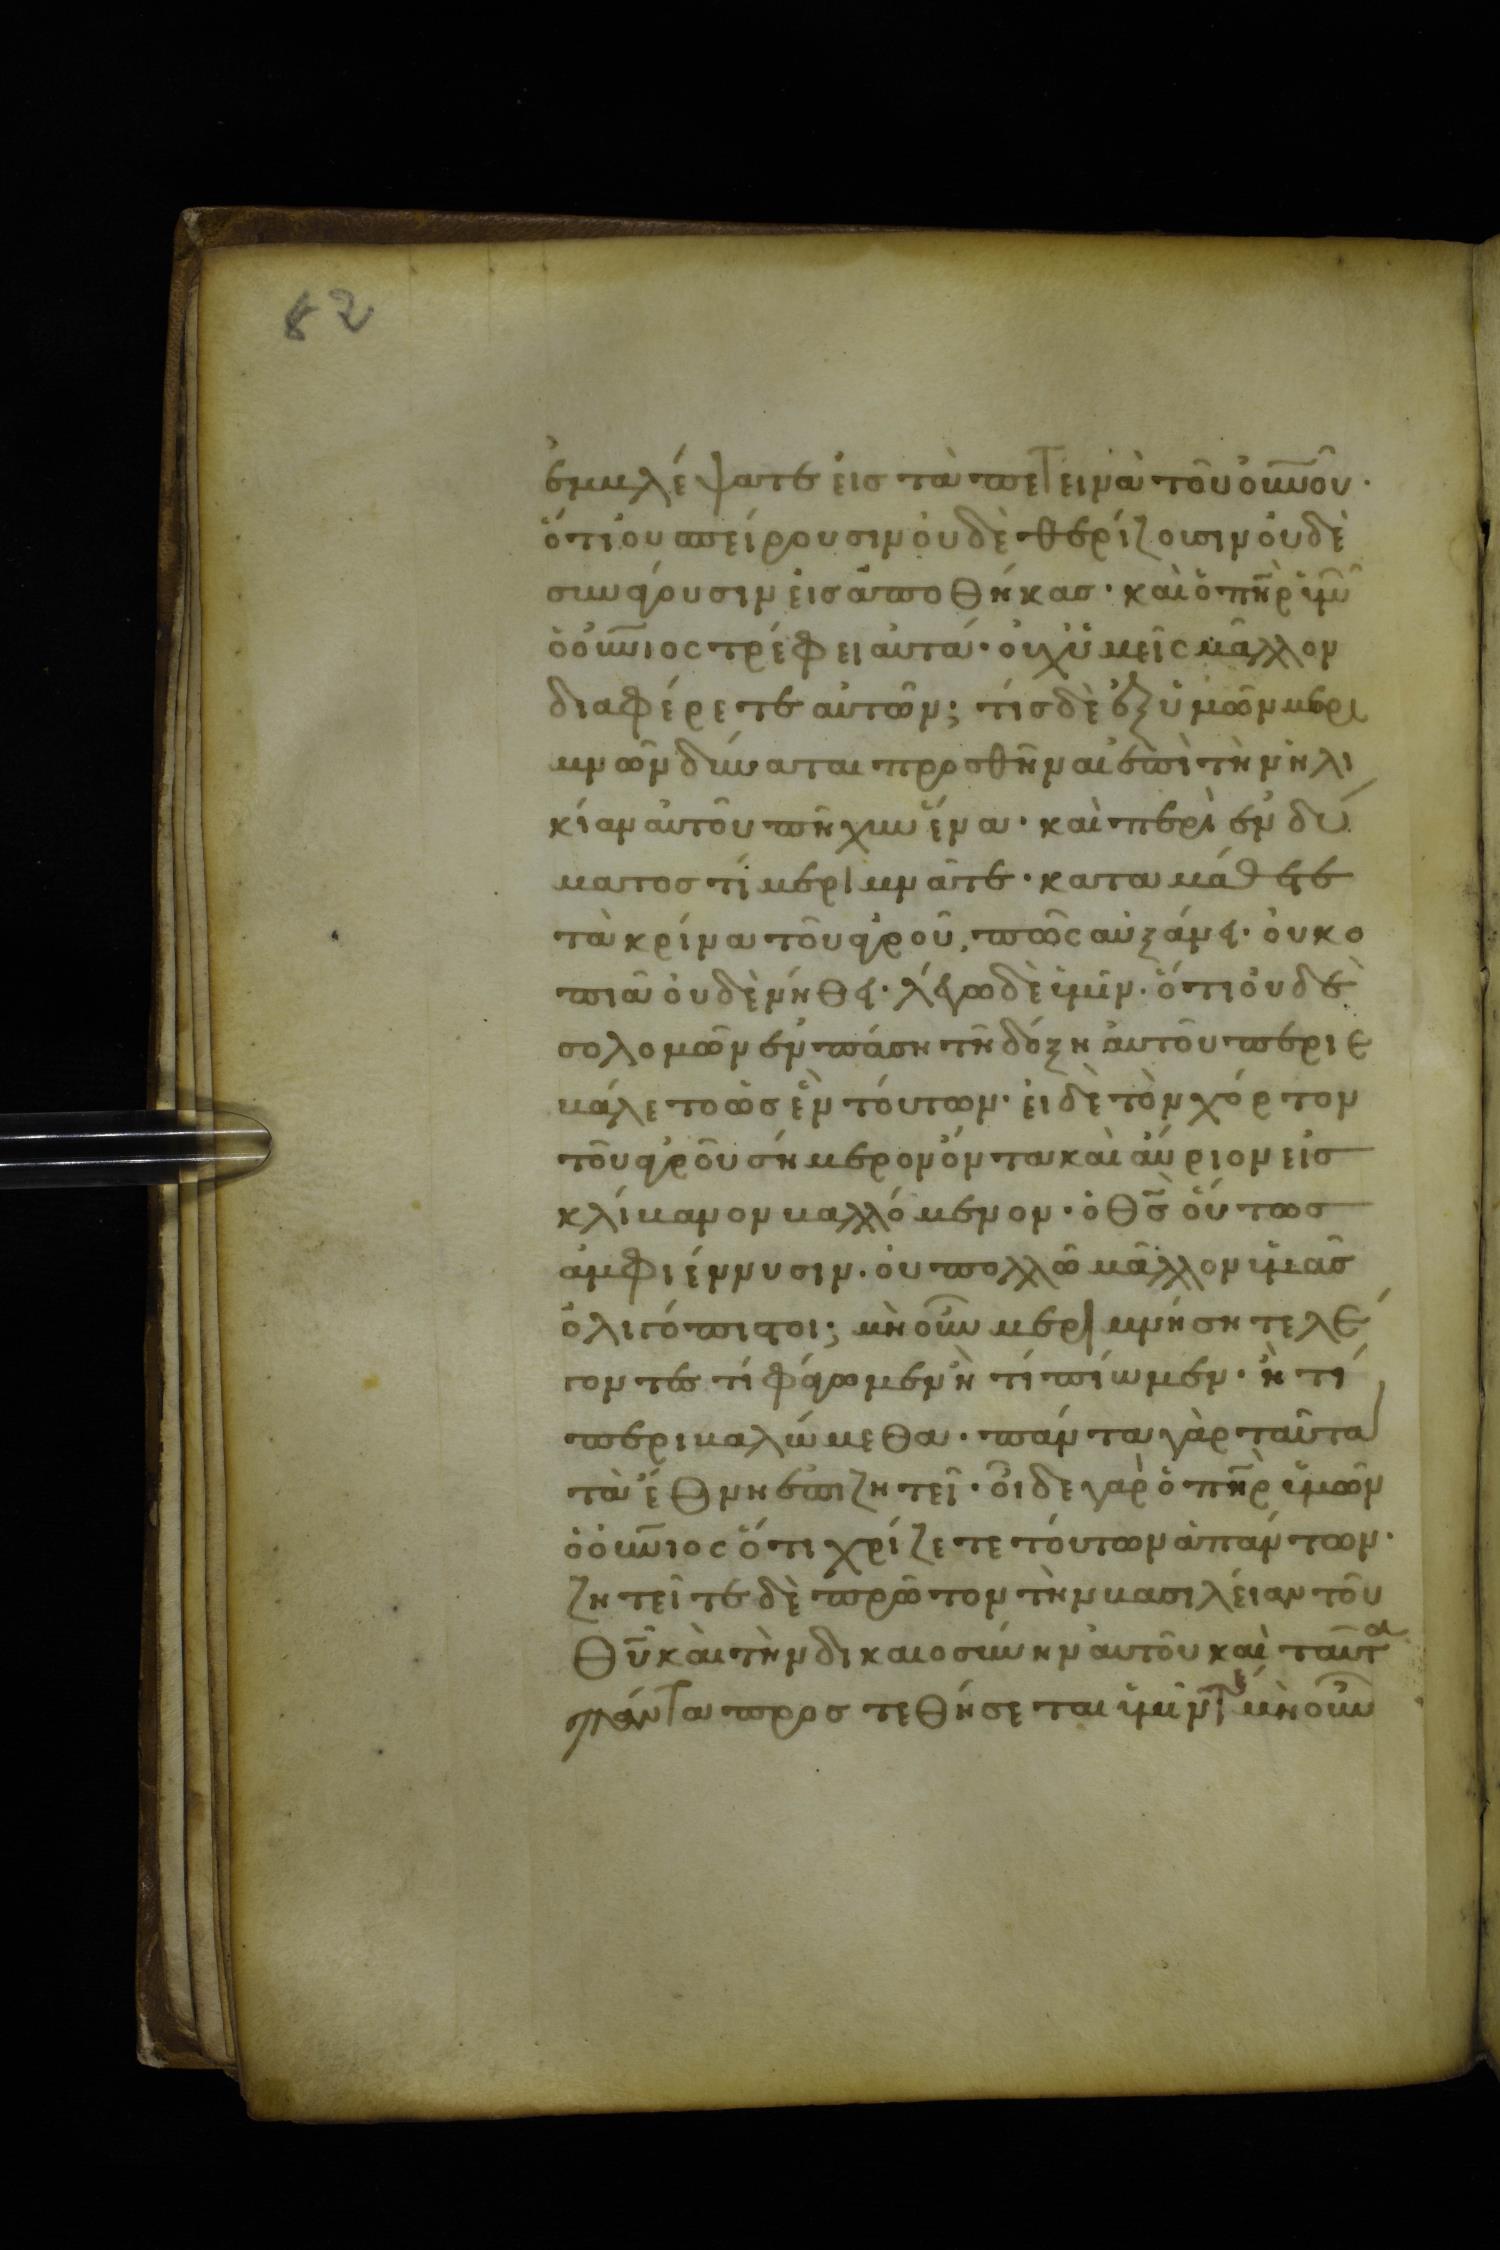 82
ἐμβλέψατε εἰς τὰ πετεινὰ τοῦ οὐ͞νοῦ·
ὅτι οὐ σπείρουσιν οὐδὲ θερίζουσιν οὐδὲ
συνάγουσιν εἰς ἀποθήκας· καὶ ὁ π͞ηρ ὑμῶν
ὁ οὐ͞νιος τρέφει αὐτά· οὐχ ὑμεῖς μᾶλλον
διαφέρετε αὐτῶν; τίς δὲ ἐξ ὑμῶν μερι
μνῶν δύναται προσθῆναι ἐπὶ τὴν ἡλι
κίαν αὐτοῦ πῆχυν ἕνα· καὶ περὶ ἐνδύ
ματος τί μεριμνᾶτε· καταμάθετε
τὰ κρίνα τοῦ ἀγροῦ, πῶς αὐξάνει· οὐ κο
πιᾶ οὐδὲ νήθει· λέγω δὲ ὑμῖν· ὅτι οὐδὲ
σολομῶν ἐν πάση τῆ δόξη αὐτοῦ περιε
βάλετο ὡς ἓν τούτων· εἰ δὲ τὸν χόρτον
τοῦ ἀγροῦ σήμερον ὄντα καὶ αὔριον εἰς
κλίβανον βαλλόμενον· ὁ θ͞ς οὕτως
ἀμφιέννυσιν· οὐ πολλῶ μᾶλλον ὑμᾶς
ὀλιγόπιστοι; μὴ οὖν μεριμνήσητε λέ
γοντες τί φάγωμεν ἢ τί πίωμεν· ἢ τί
περιβαλώμεθα· πάντα γὰρ ταῦτα
τὰ ἔθνη ἐπιζητεῖ· οἶδε γὰρ ὁ π͞ηρ ὑμῶν
ὁ οὐ͞νιος ὅτι χρίζετε τούτων ἁπάντων·
ζητεῖτε δὲ πρῶτον τὴν βασιλείαν τοῦ
θ͞υ καὶ τὴν δικαιοσύνην αὐτοῦ καὶ ταῦτα
πάντα προστεθήσεται ὑμῖν· μὴ οὖν